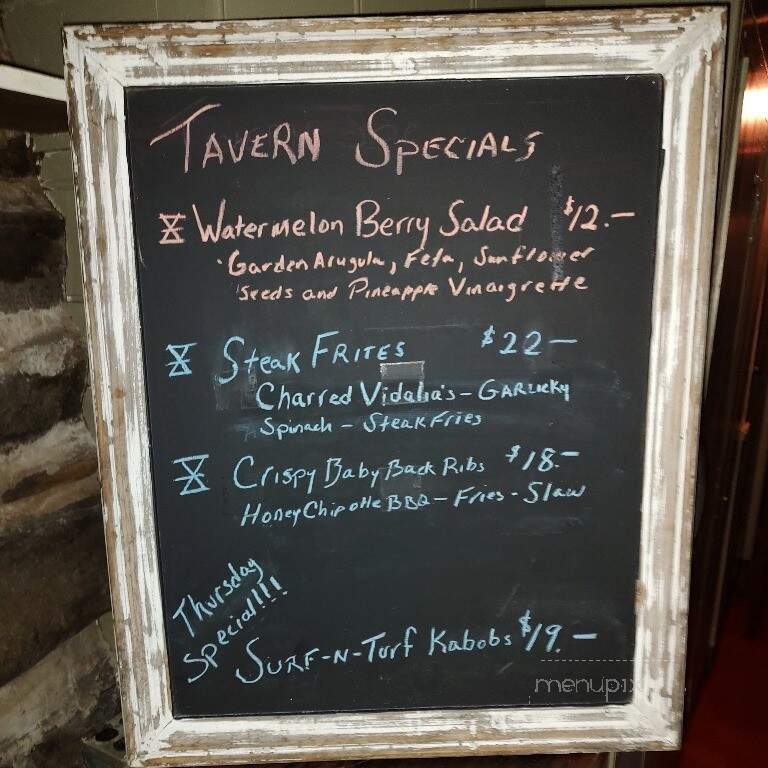 TAVERN SPECIALS
Watermelon Berry Salad $12.-
Garden Arugula, Feta, Sunflower
Seeds and Pineapple Vinaigrette
Steak FRITES $22-
Charred Vidalia's - GARLICKY
Spinach - Steak Fries
Crispy Baby Back Ribs $18.-
Honey Chipotle BBQ - Fries - Slaw
Thursday
Special!!!
SURF-N-Turf Kabobs $19.-
menupix